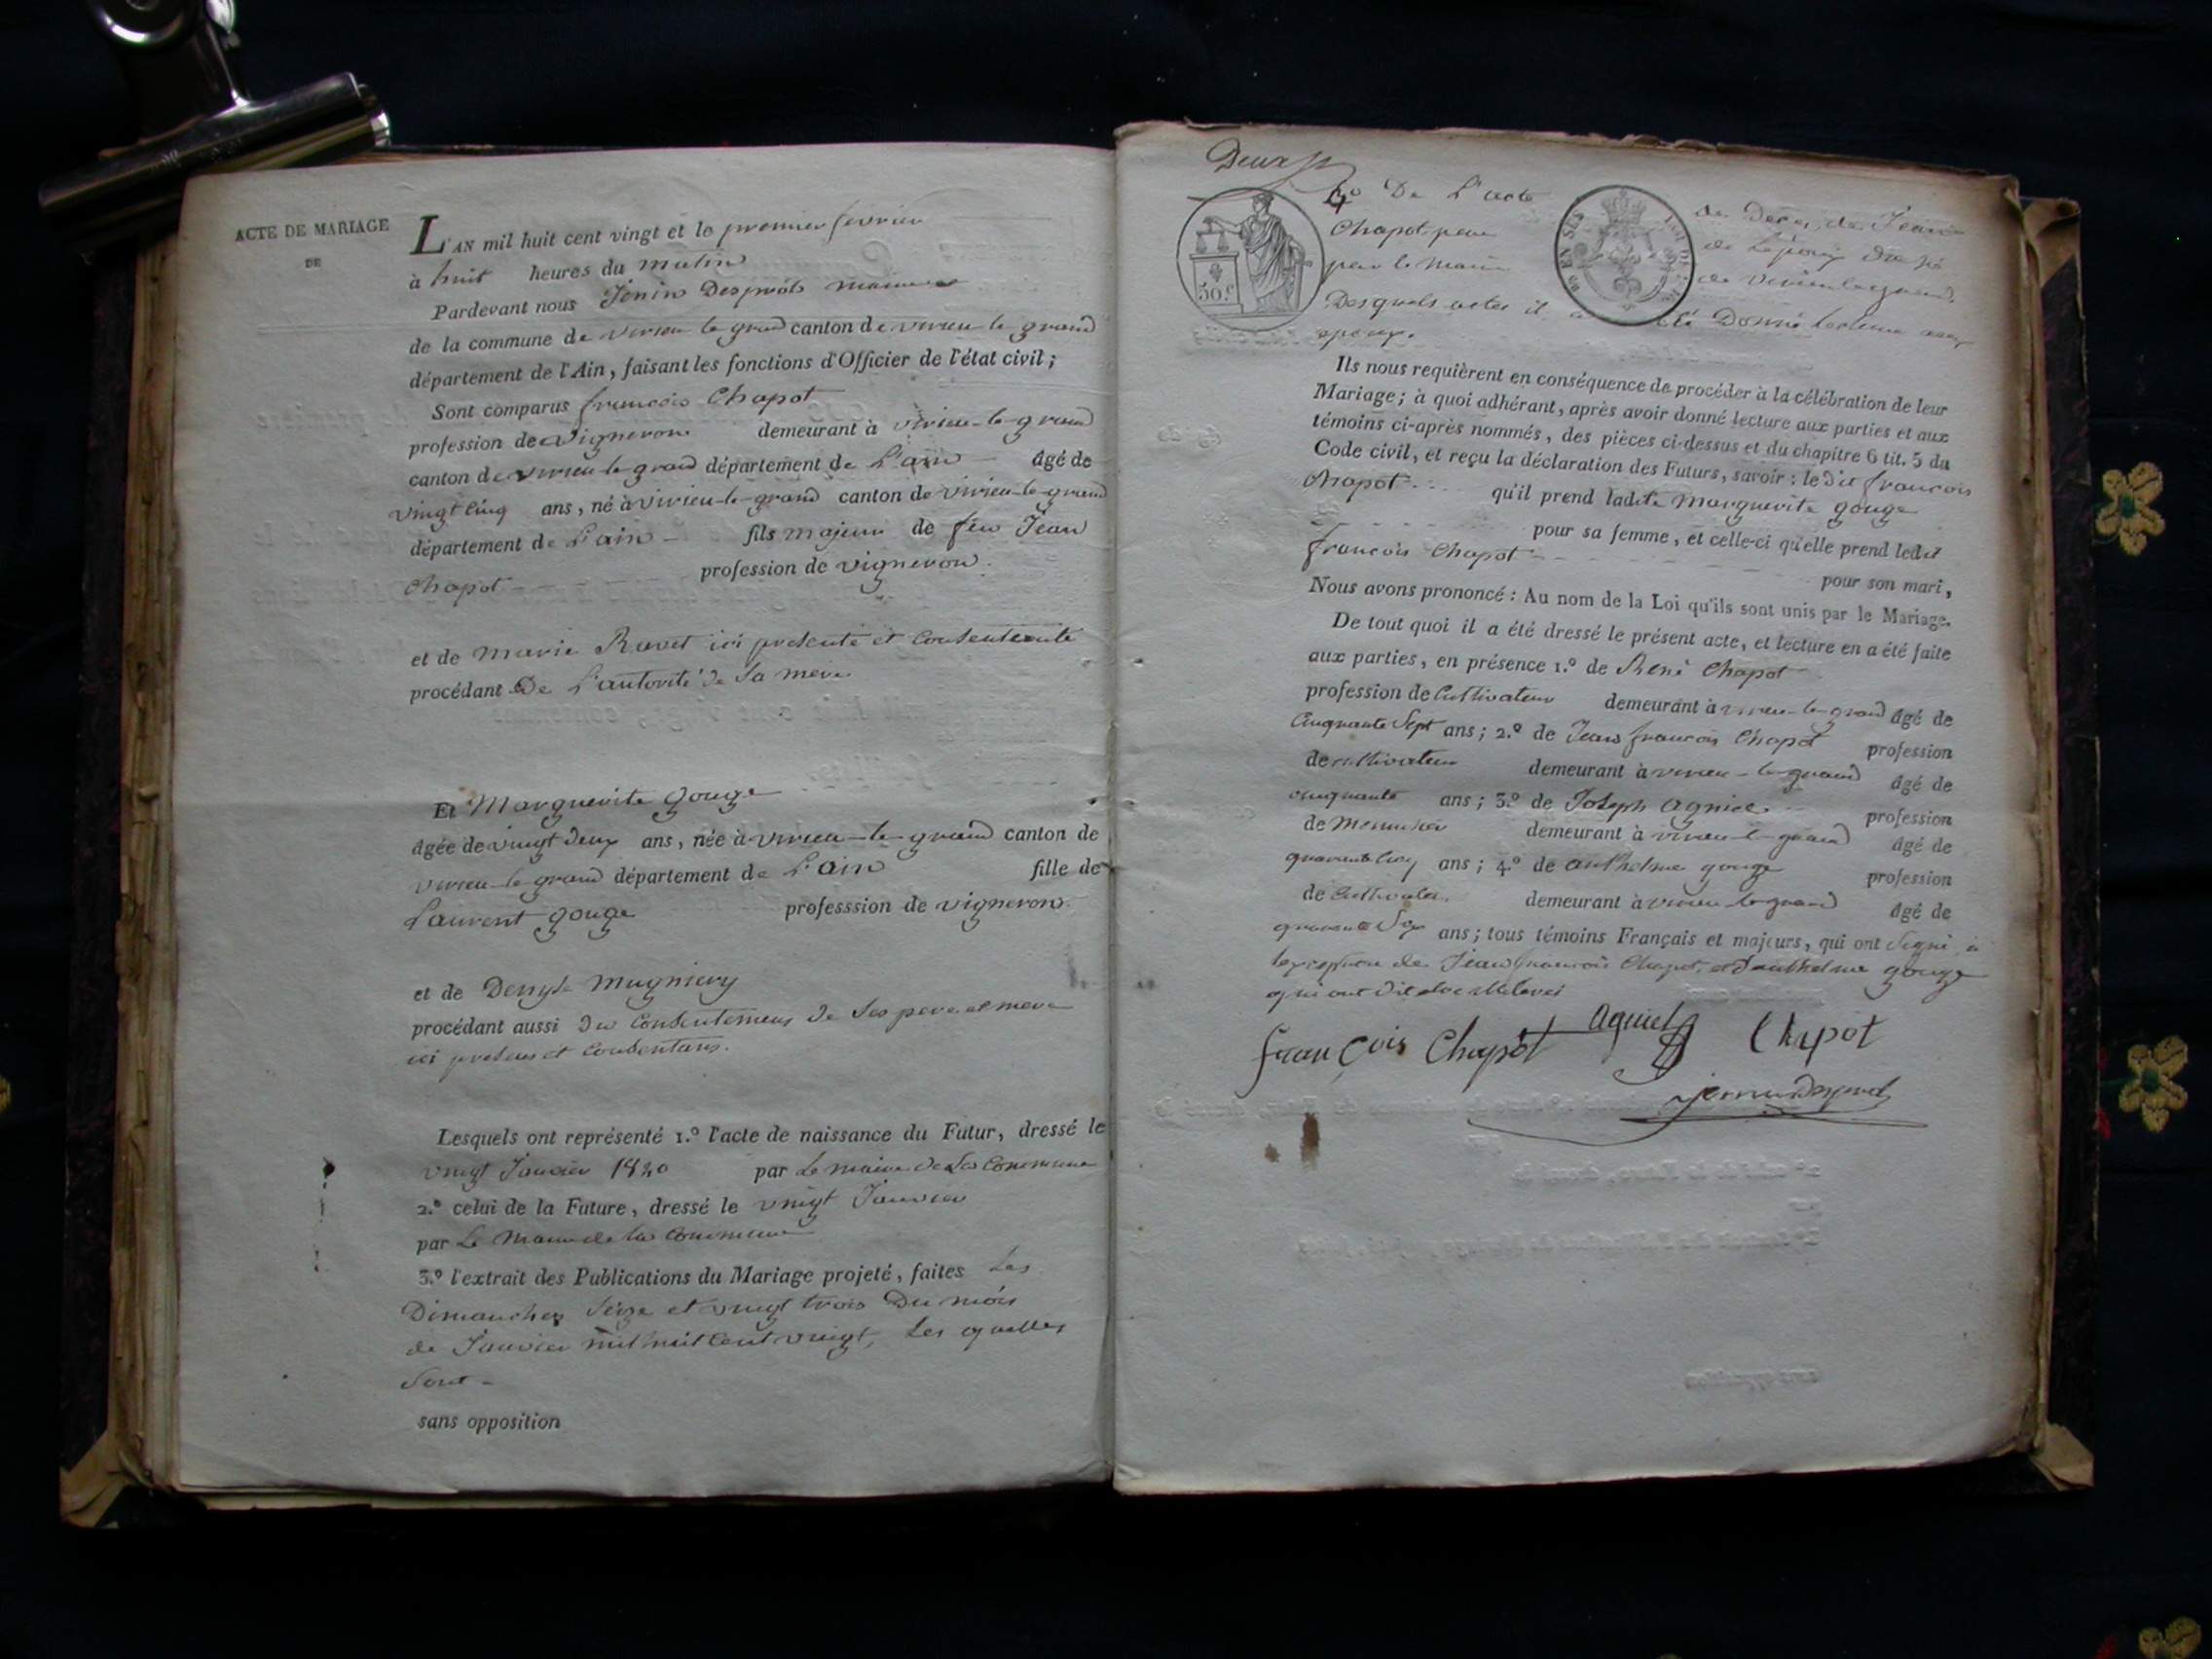 ACTE DE MARIAGE
DE
L'AN mil huit cent vingt et le premier fevrier
à huit heures du matin
Pardevant nous Jenin Desprots maire
de la commune de virieu le grand canton de virieu le grand
département de l'Ain, faisant les fonctions d'Officier de l'état civil;
Sont comparus francois Chapot
profession de vigneron demeurant à virieu-le-grand
canton de virieu le grand département de L'ain âgé de
vingt cinq ans, né à virieu-le-grand canton de virieu-le-grand
département de L'ain fils majeur de feu Jean
Chapot profession de vigneron.
et de marie Ravet ici presente et Consentente
procédant De L'autorité de Sa mere
Et Marguerite gouge
âgée de vingt deux ans, née à virieu-le-grand canton de
virieu-le-grand département de L'ain fille de
Laurent gouge professsion de vigneron
et de Denyse mugniery
procédant aussi du Consentement de Ses pere et mere
ici presens et Consentans.
Lesquels ont représenté 1.º l'acte de naissance du Futur, dressé le
vingt Janvier 1820 par Le maire de La Commune
2.º celui de la Future, dressé le vingt Janvier
par Le Maire de la Commune
3.º l'extrait des Publications du Mariage projeté, faites Les
Dimanches Seize et vingt trois Du mois
de Janvier mil huit Cent vingt, Les quelles
Sont -
sans opposition
Deux
4º De L'acte de Deces de Jean
Chapot pere de
par le Maire de virieu le grand.
Desquels actes il a été Donné Lecture aux
epoux.
50.c
Ils nous requièrent en conséquence de procéder à la célébration de leur
Mariage; à quoi adhérant, après avoir donné lecture aux parties et aux
témoins ci-après nommés, des pièces ci-dessus et du chapitre 6 tit. 5 du
Code civil, et reçu la déclaration des Futurs, savoir: le dit francois
Chapot qu'il prend ladite Marguerite gouge
pour sa femme, et celle-ci qu'elle prend ledit
francois Chapot pour son mari,
Nous avons prononcé: Au nom de la Loi qu'ils sont unis par le Mariage.
De tout quoi il a été dressé le présent acte, et lecture en a été faite
aux parties, en présence 1.º de René Chapot
profession de Cultivateur demeurant à virieu-le-grand âgé de
Cinquante Sept ans; 2.º de Jean francois Chapot profession
de cultivateur demeurant à virieu-le-grand âgé de
cinquante ans; 3.º de Joseph agniel profession
de Menuisier demeurant à virieu-le-grand âgé de
quarante Cinq ans; 4.º de anthelme gouge profession
de Cultivateur demeurant à virieu-le-grand âgé de
quarante Six ans; tous témoins Français et majeurs, qui ont Signé à
lexception de Jean francois Chapot et Danthelme gouge
qui ont dit
françois Chapot Agniel Chapot
jenin Desprots